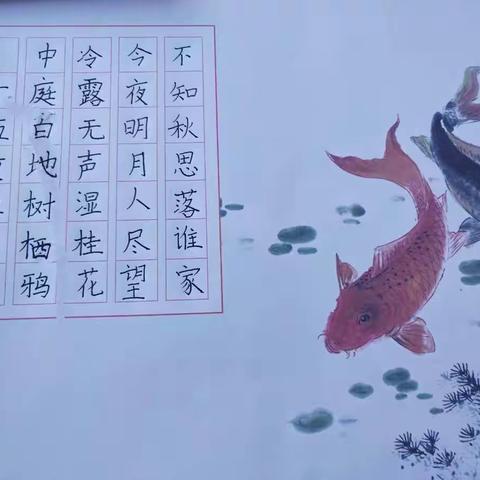 中庭白地树栖鸦
冷露无声湿桂花
今夜明月人尽望
不知秋思落谁家